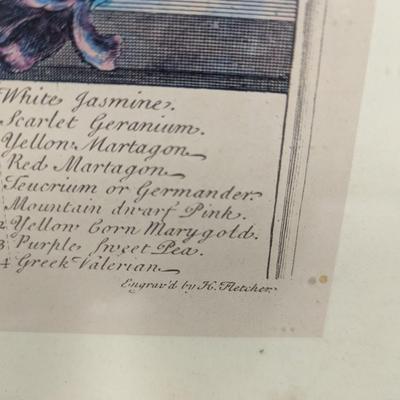 White Jasmine.
Scarlet Geranium.
Yellow Martagon
Red Martagon
Teucrium or Germander.
Mountain dwarf Pink.
2 Yellow Corn Marygold.
3 Purple sweet Pea.
4 Greek Valerian
Engrav'd by H. Fletcher.